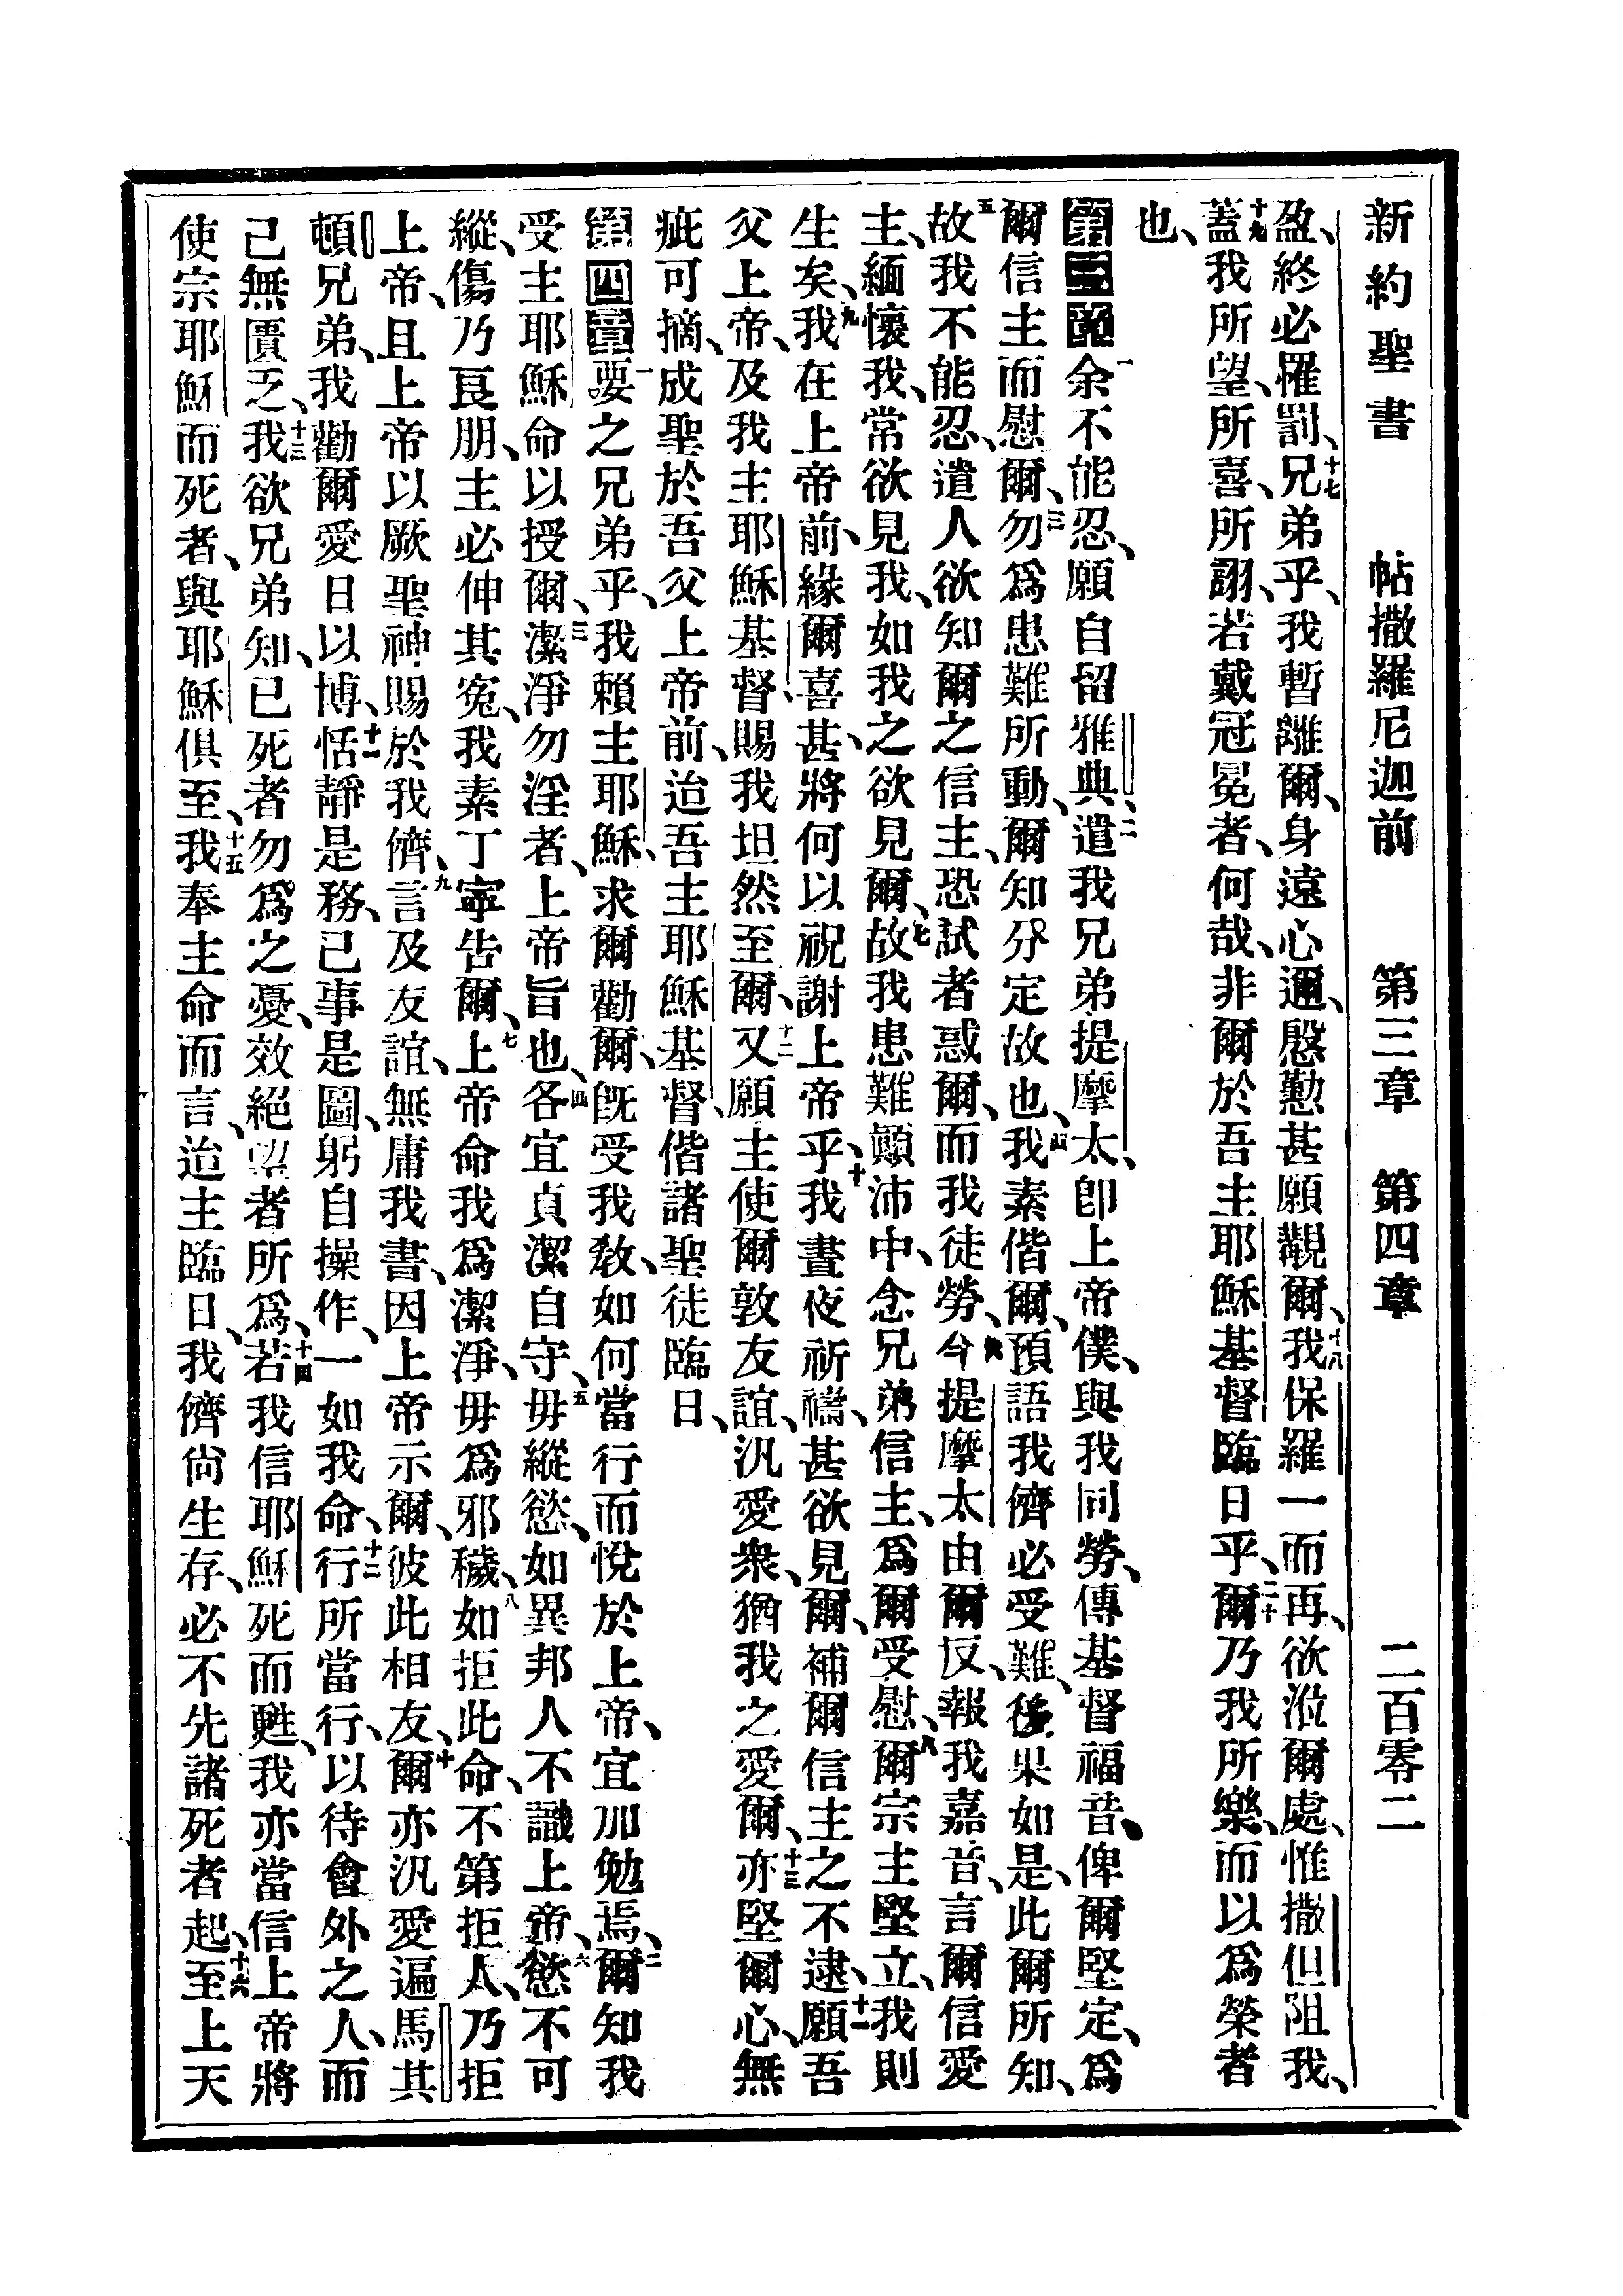 新約聖書 帖撒羅尼迦前 第三章 第四章 二百零二
盈、終必罹罰、十七兄弟乎、我暫離爾、身遠心邇、慇懃甚願觀爾、十八我保羅一而再、欲涖爾處、惟撒但阻我、
十九蓋我所望、所喜、所詡、若戴冠冕者、何哉、非爾於吾主耶穌基督臨日乎、二十爾乃我所樂、而以爲榮者
也、
第三章一余不能忍、願自留雅典、二遣我兄弟提摩太、卽上帝僕、與我同勞、傳基督福音、俾爾堅定、爲
爾信主而慰爾、三勿爲患難所動、爾知分定故也、四我素偕爾、預語我儕必受難、後果如是、此爾所知、
五故我不能忍、遣人欲知爾之信主、恐試者惑爾、而我徒勞、六今提摩太由爾反、報我嘉音、言爾信愛
主、緬懷我、常欲見我、如我之欲見爾、七故我患難顚沛中、念兄弟信主、爲爾受慰、八爾宗主堅立、我則
生矣、九我在上帝前、緣爾喜甚、將何以祝謝上帝乎、十我晝夜祈禱、甚欲見爾、補爾信主之不逮、十一願吾
父上帝、及我主耶穌基督、賜我坦然至爾、十二又願主使爾敦友誼、汎愛衆、猶我之愛爾、十三亦堅爾心、無
疵可摘、成聖於吾父上帝前、迨吾主耶穌基督、偕諸聖徒臨日、
第四章一要之兄弟乎、我賴主耶穌、求爾勸爾、旣受我教、如何當行而悅於上帝、宜加勉焉、二爾知我
受主耶穌命以授爾、三潔淨勿淫者、上帝旨也、四各宜貞潔自守、五毋縱慾、如異邦人不識上帝、六慾不可
縱、傷乃良朋、主必伸其寃、我素丁寧告爾、七上帝命我爲潔淨、毋爲邪穢、八如拒此命、不第拒人、乃拒
上帝、且上帝以厥聖神賜於我儕、九言及友誼、無庸我書、因上帝示爾、彼此相友、十爾亦汎愛遍馬其
頓兄弟、我勸爾愛日以博、十一恬靜是務、己事是圖、躬自操作、一如我命、十二行所當行、以待會外之人、而
己無匱乏、十三我欲兄弟知、已死者勿爲之憂、效絕望者所爲、十四若我信耶穌死而甦、我亦當信上帝將
使宗耶穌而死者、與耶穌俱至、十五我奉主命而言、迨主臨日、我儕尙生存、必不先諸死者起、十六至上天